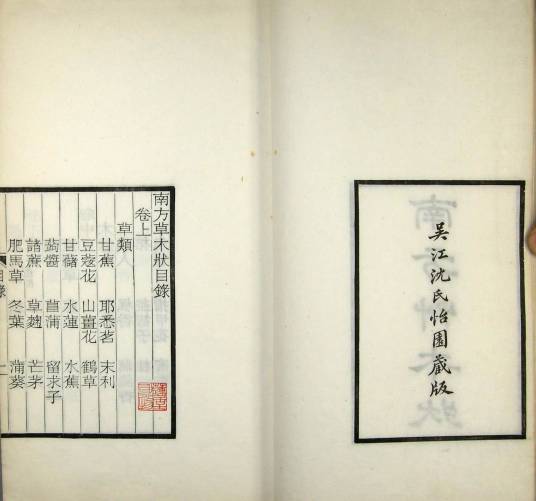 吳江沈氏怡園藏版
南方草木狀目錄
卷上
草類
甘蕉 耶悉茗 末利
豆蔻花 山薑花 鶴草
甘藷 水蓮 水蕉
蒟醬 菖蒲 留求子
諸蔗 草麴 芒茅
肥馬草 冬葉 蒲葵
目錄